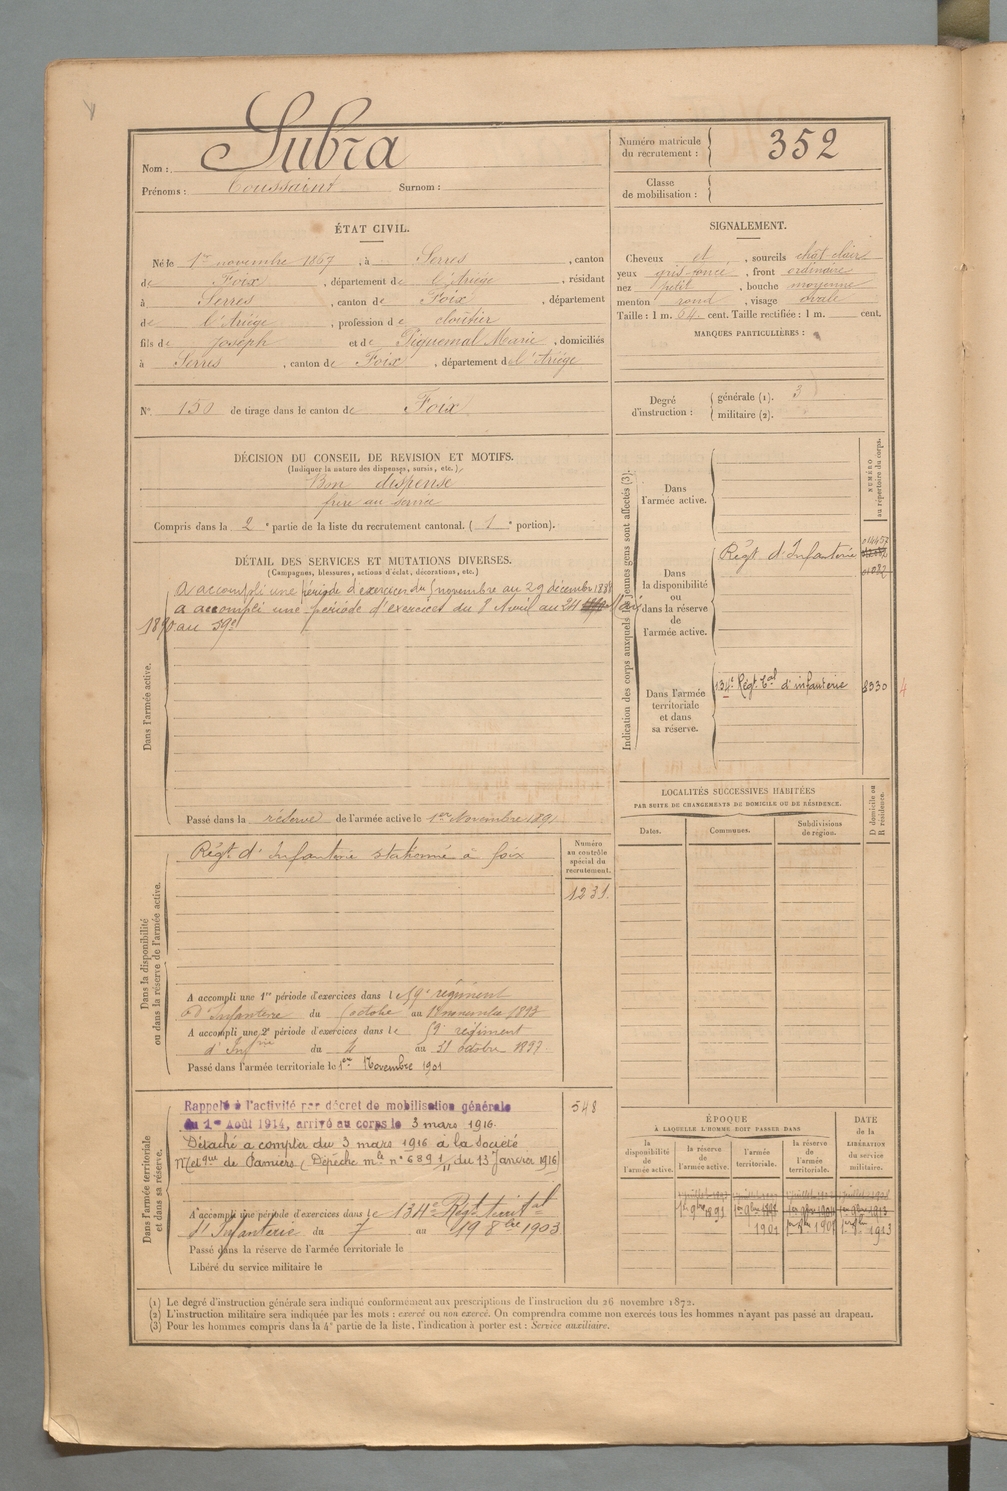 Nom : Subra
Prénoms : Toussaint Surnom :
Numéro matricule du recrutement : 352
Classe de mobilisation :
ÉTAT CIVIL.
Né le 1er novembre 1867, à Serres, canton
de Foix, département de l'Ariège, résidant
à Serres, canton de Foix, département
de l'Ariège, profession de cloutier
fils de Joseph et de Piquemal Marie, domiciliés
à Serres, canton de Foix, département de l'Ariège
N° 150 de tirage dans le canton de Foix
SIGNALEMENT.
Cheveux et, sourcils chât clair
yeux gris foncé, front ordinaire
nez petit, bouche moyenne
menton rond, visage ovale
Taille : 1 m. 64 cent. Taille rectifiée : 1 m. cent.
MARQUES PARTICULIÈRES :
Degré d'instruction : générale (1). 3
militaire (2).
DÉCISION DU CONSEIL DE REVISION ET MOTIFS.
(Indiquer la nature des dispenses, sursis, etc.)
Bon dispensé
frère au service
Compris dans la 2e partie de la liste du recrutement cantonal. (1e portion).
DÉTAIL DES SERVICES ET MUTATIONS DIVERSES.
(Campagnes, blessures, actions d'éclat, décorations, etc.)
Dans l'armée active.
A accompli une période d'exercices du 5 novembre au 29 décembre 1888
a accompli une période d'exercices du 2 Avril au 24 Mai
1890 au 59e
Passé dans la réserve de l'armée active le 1er Novembre 1891
Dans la disponibilité ou dans la réserve de l'armée active.
Régt d'Infanterie stationné à Foix
Numéro au contrôle spécial du recrutement.
1231.
A accompli une 1re période d'exercices dans le 59e régiment
d'Infanterie du octobre au novembre 1893
A accompli une 2e période d'exercices dans le 59e régiment
d'Infrie du 4 au 31 octobre 1897
Passé dans l'armée territoriale le 1er Novembre 1901
Dans l'armée territoriale et dans sa réserve.
Rappelé à l'activité par décret de mobilisation générale
du 1er Août 1914, arrivé au corps le 3 mars 1916.
Détaché a compter du 3 mars 1916 à la Société
Métque de Pamiers (Dépêche mle n° 689 1/11 du 13 Janvier 1916)
548
A accompli une période d'exercices dans le 134e Régt territal
d'Infanterie du 7 au 19 8bre 1903
Passé dans la réserve de l'armée territoriale le
Libéré du service militaire le
Indication des corps auxquels les jeunes gens sont affectés (3).
NUMÉRO au répertoire du corps.
Dans l'armée active.
Dans la disponibilité ou dans la réserve de l'armée active.
Régt d'Infanterie
01082
Dans l'armée territoriale et dans sa réserve.
134e Régt Tal d'infanterie 8330 4
LOCALITÉS SUCCESSIVES HABITÉES
PAR SUITE DE CHANGEMENTS DE DOMICILE OU DE RÉSIDENCE.
D domicile ou R résidence.
Dates. Communes. Subdivisions de région.
ÉPOQUE
À LAQUELLE L'HOMME DOIT PASSER DANS
DATE de la LIBÉRATION du service militaire.
la disponibilité de l'armée active.
la réserve de l'armée active.
l'armée territoriale.
la réserve de l'armée territoriale.
1er 9bre 1891
1901
(1) Le degré d'instruction générale sera indiqué conformément aux prescriptions de l'instruction du 26 novembre 1872.
(2) L'instruction militaire sera indiquée par les mots : exercé ou non exercé. On comprendra comme non exercés tous les hommes n'ayant pas passé au drapeau.
(3) Pour les hommes compris dans la 4e partie de la liste, l'indication à porter est : Service auxiliaire.